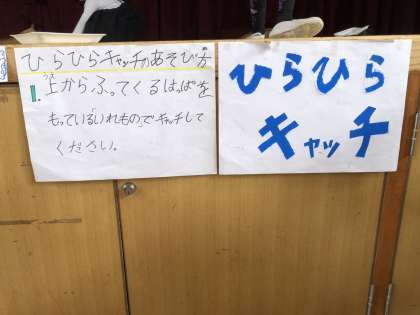 ひらひらキャッチのあそび方
1. 上からふってくるはっぱを
もっているいれものでキャッチして
ください。
ひらひら
キャッチ